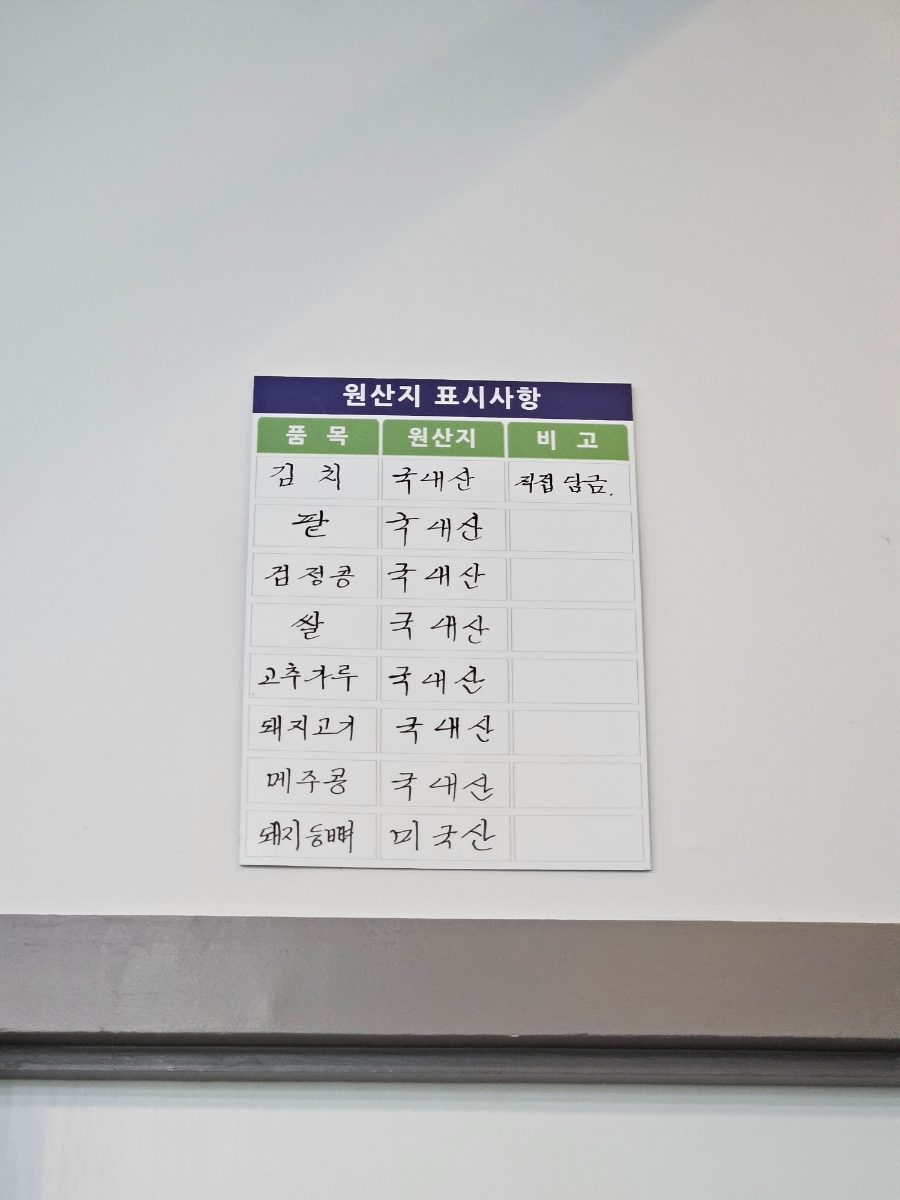 원산지 표시사항
품 목 원산지 비 고
김 치 국내산 직접 담금.
팥 국내산
검정콩 국내산
쌀 국내산
고추가루 국내산
돼지고기 국내산
메주콩 국내산
돼지등뼈 미국산